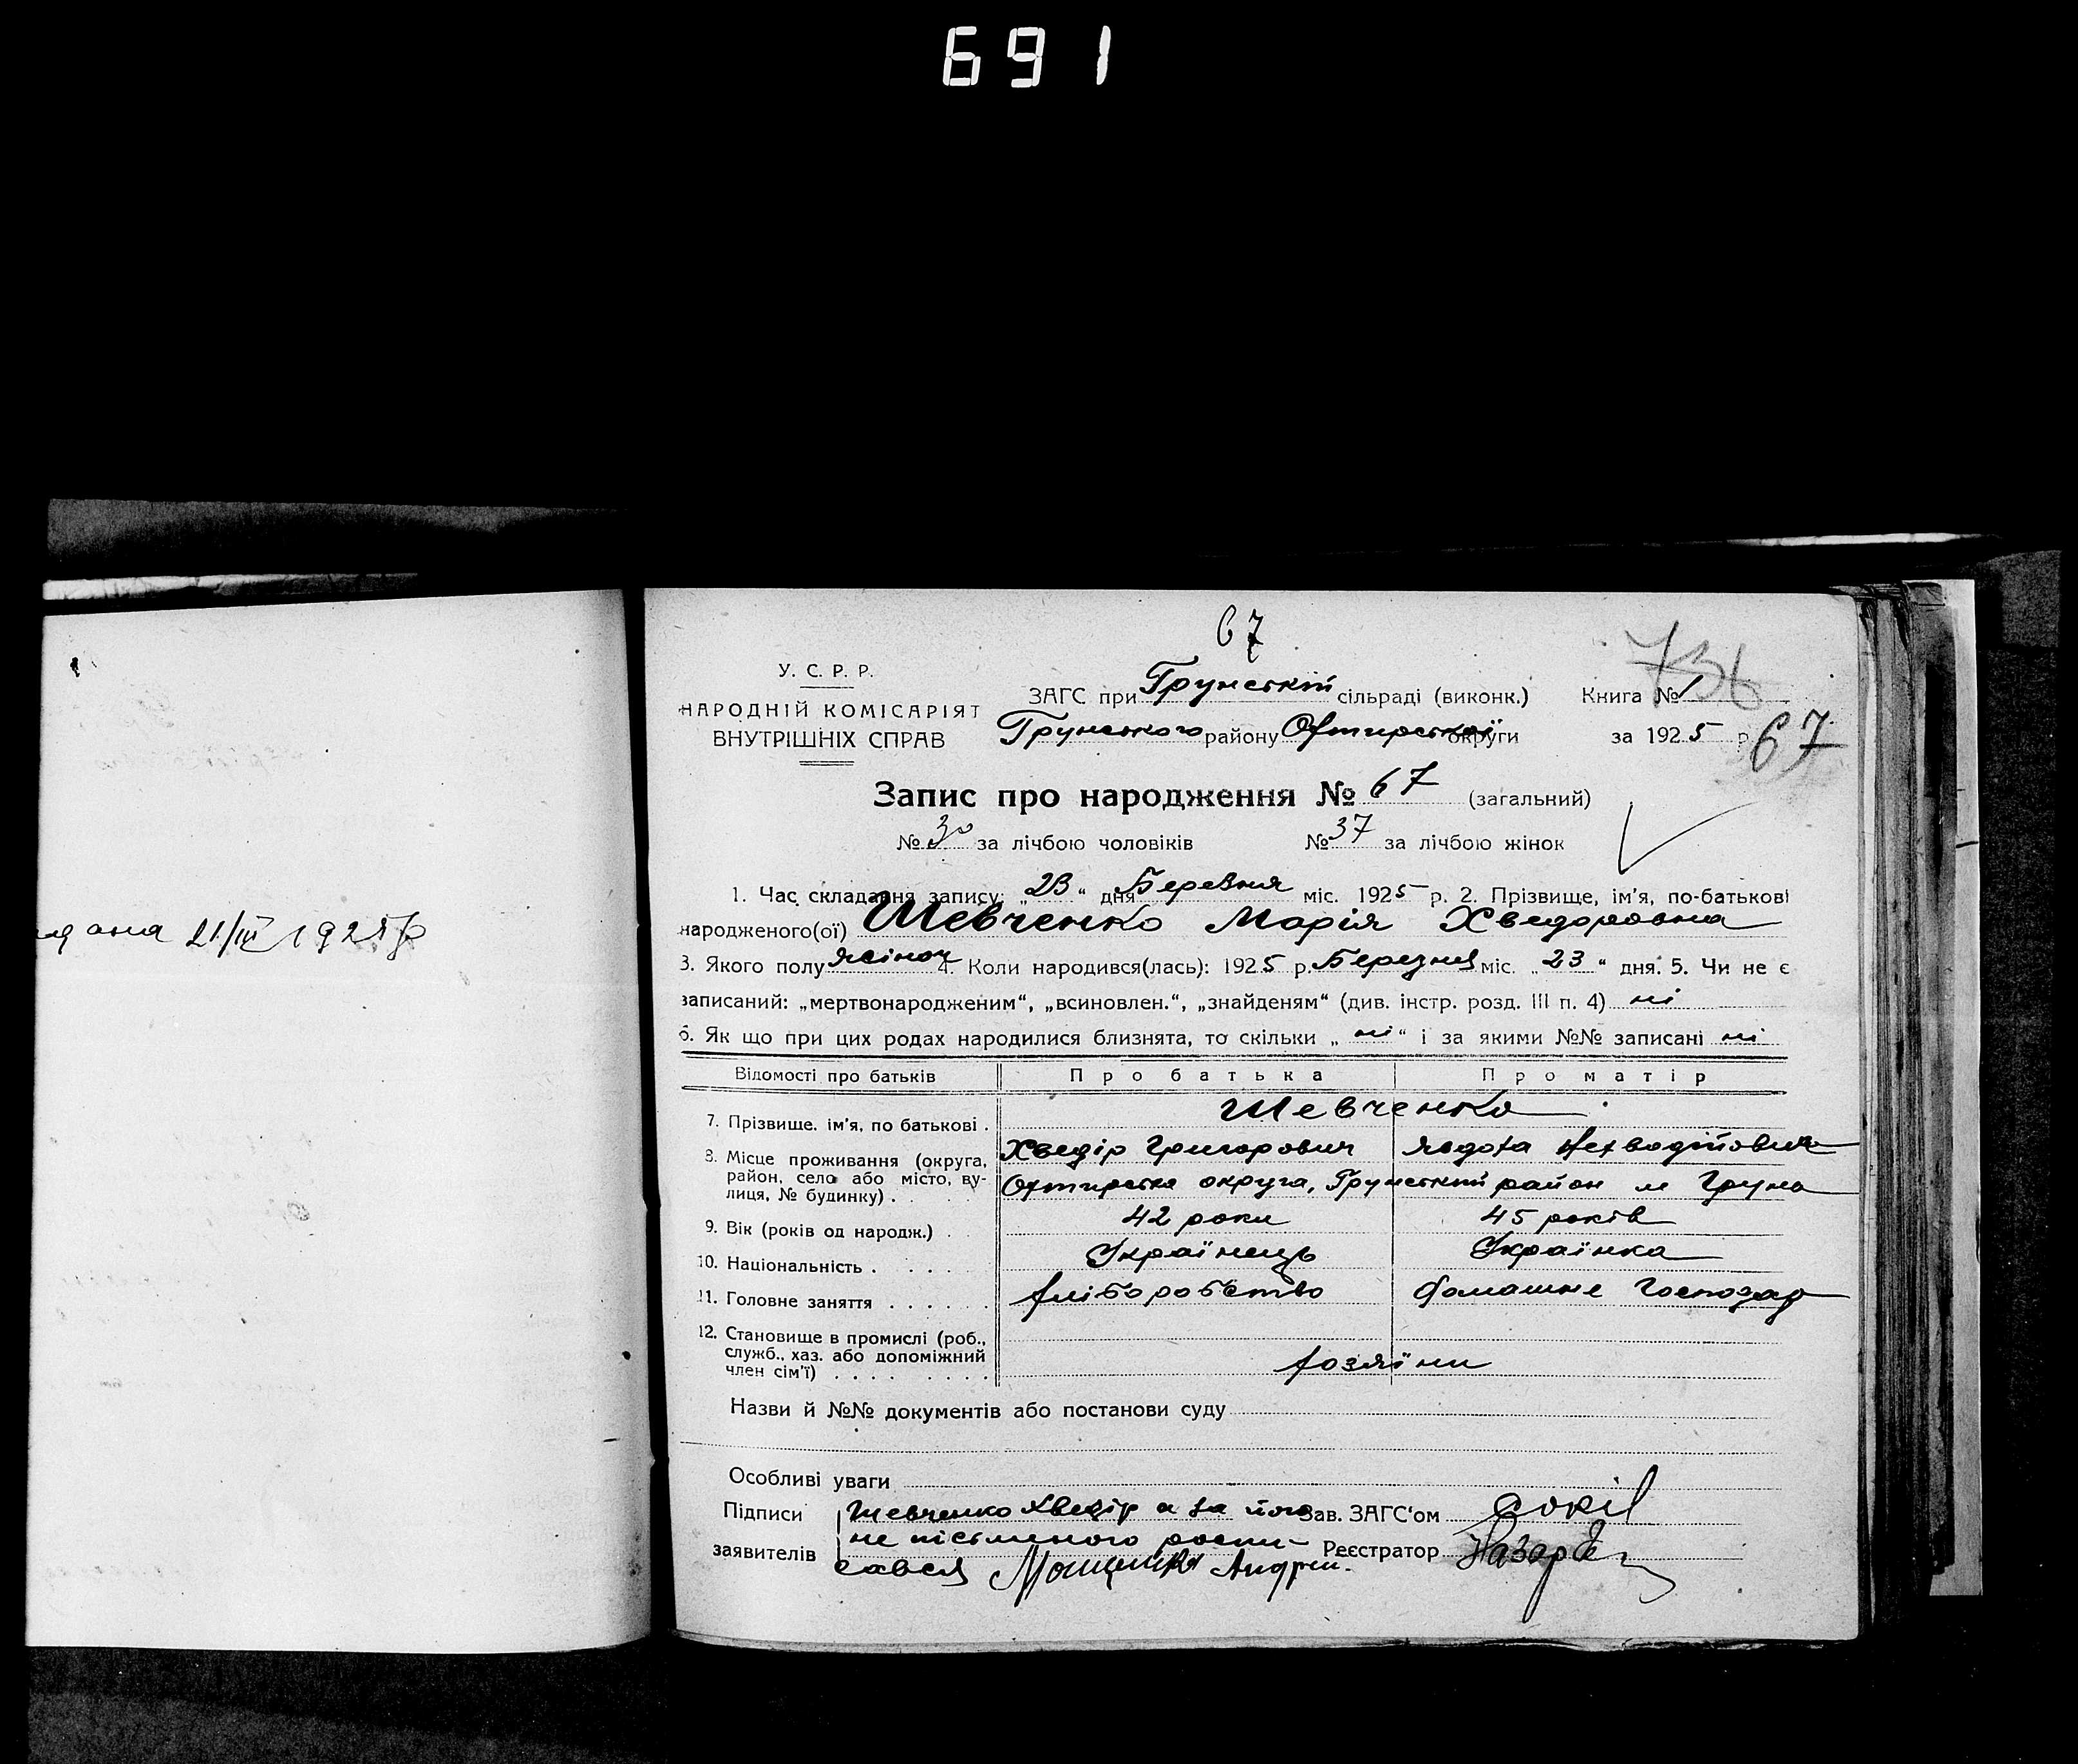 691
дана 21/III 1925 р
67
736
У. С. Р. Р.
НАРОДНІЙ КОМІСАРІЯТ
ВНУТРІШНІХ СПРАВ
ЗАГС при Грунській сільраді (виконк.) Книга № 1
Грунського району Охтирської округи за 1925 р.
67
Запис про народження № 67 (загальний)
№ 30 за лічбою чоловіків № 37 за лічбою жінок
1. Час складання запису: „23“ дня Березня міс. 1925 р. 2. Прізвище, ім’я, по-батькові
народженого(ої) Шевченко Марія Хведоровна
3. Якого полу жіноч 4. Коли народився(лась): 1925 р. Березня міс. „23“ дня. 5. Чи не є
записаний: „мертвонародженим“, „всиновлен.“, „знайденям“ (див. інстр. розд. III п. 4) ні
6. Як що при цих родах народилися близнята, то скільки „ні“ і за якими №№ записані ні
Відомості про батьків Про батька Про матір
7. Прізвище. ім’я, по батькові . Шевченко
Хведір Григорович
8. Місце проживання (округа,
район, село або місто, ву-
лиця, № будинку) . Охтирська округа, Грунський район м Грунь
9. Вік (років од народж.) . 42 роки 45 років
10. Національність . . . . . Українець Українка
11. Головне заняття . . . . . . хліборобство домашне господар
12. Становище в промислі (роб.,
служб., хаз. або допоміжний
член сім’ї) . . . . . . . . хозяїни
Назви й №№ документів або постанови суду
Особливі уваги
Підписи Шевченко Хведір а за його Зав. ЗАГС‘ом Сокіл
не пісьменого роспи-
заявителів Реєстратор
сався Андрій